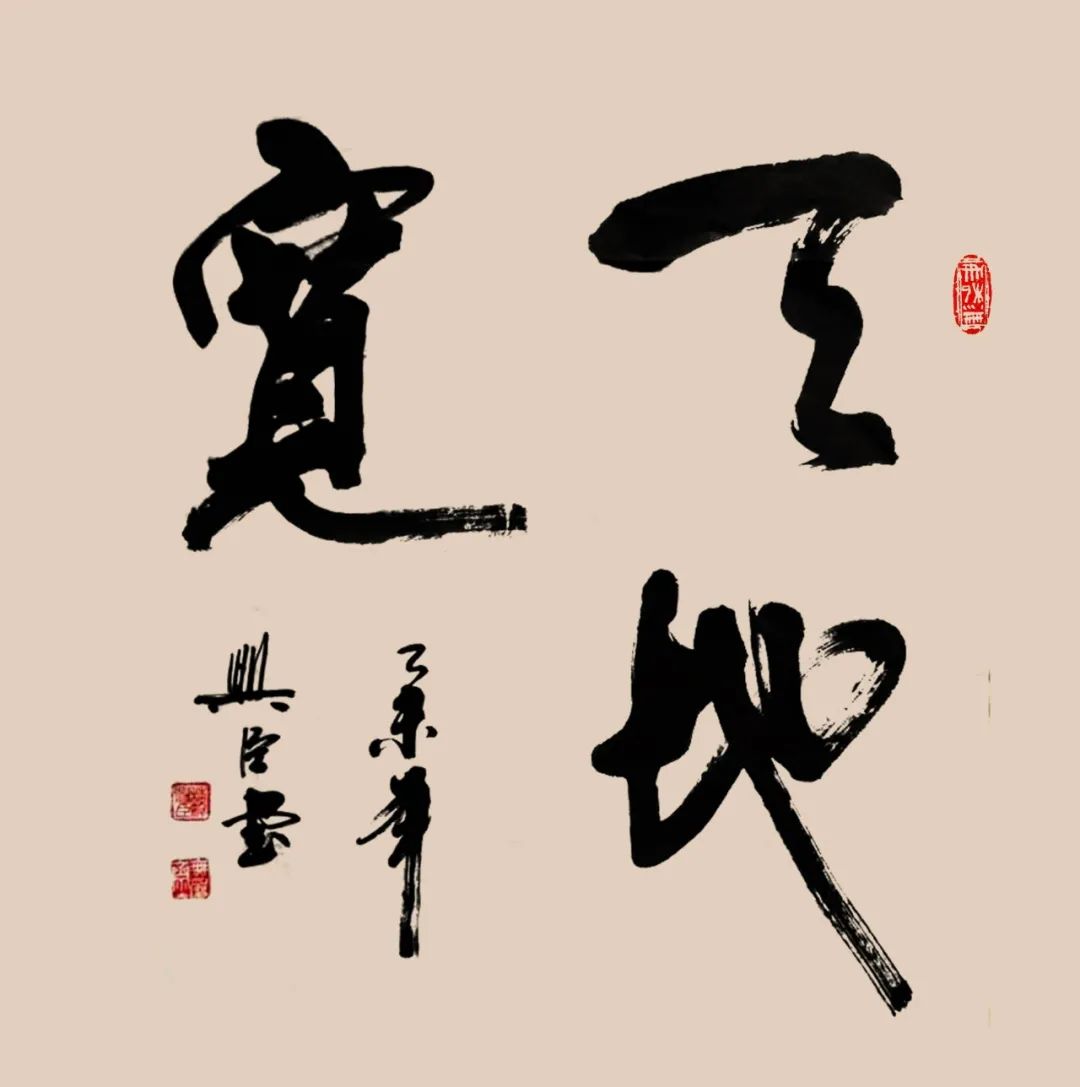 天地
寬
乙未年
興臣書